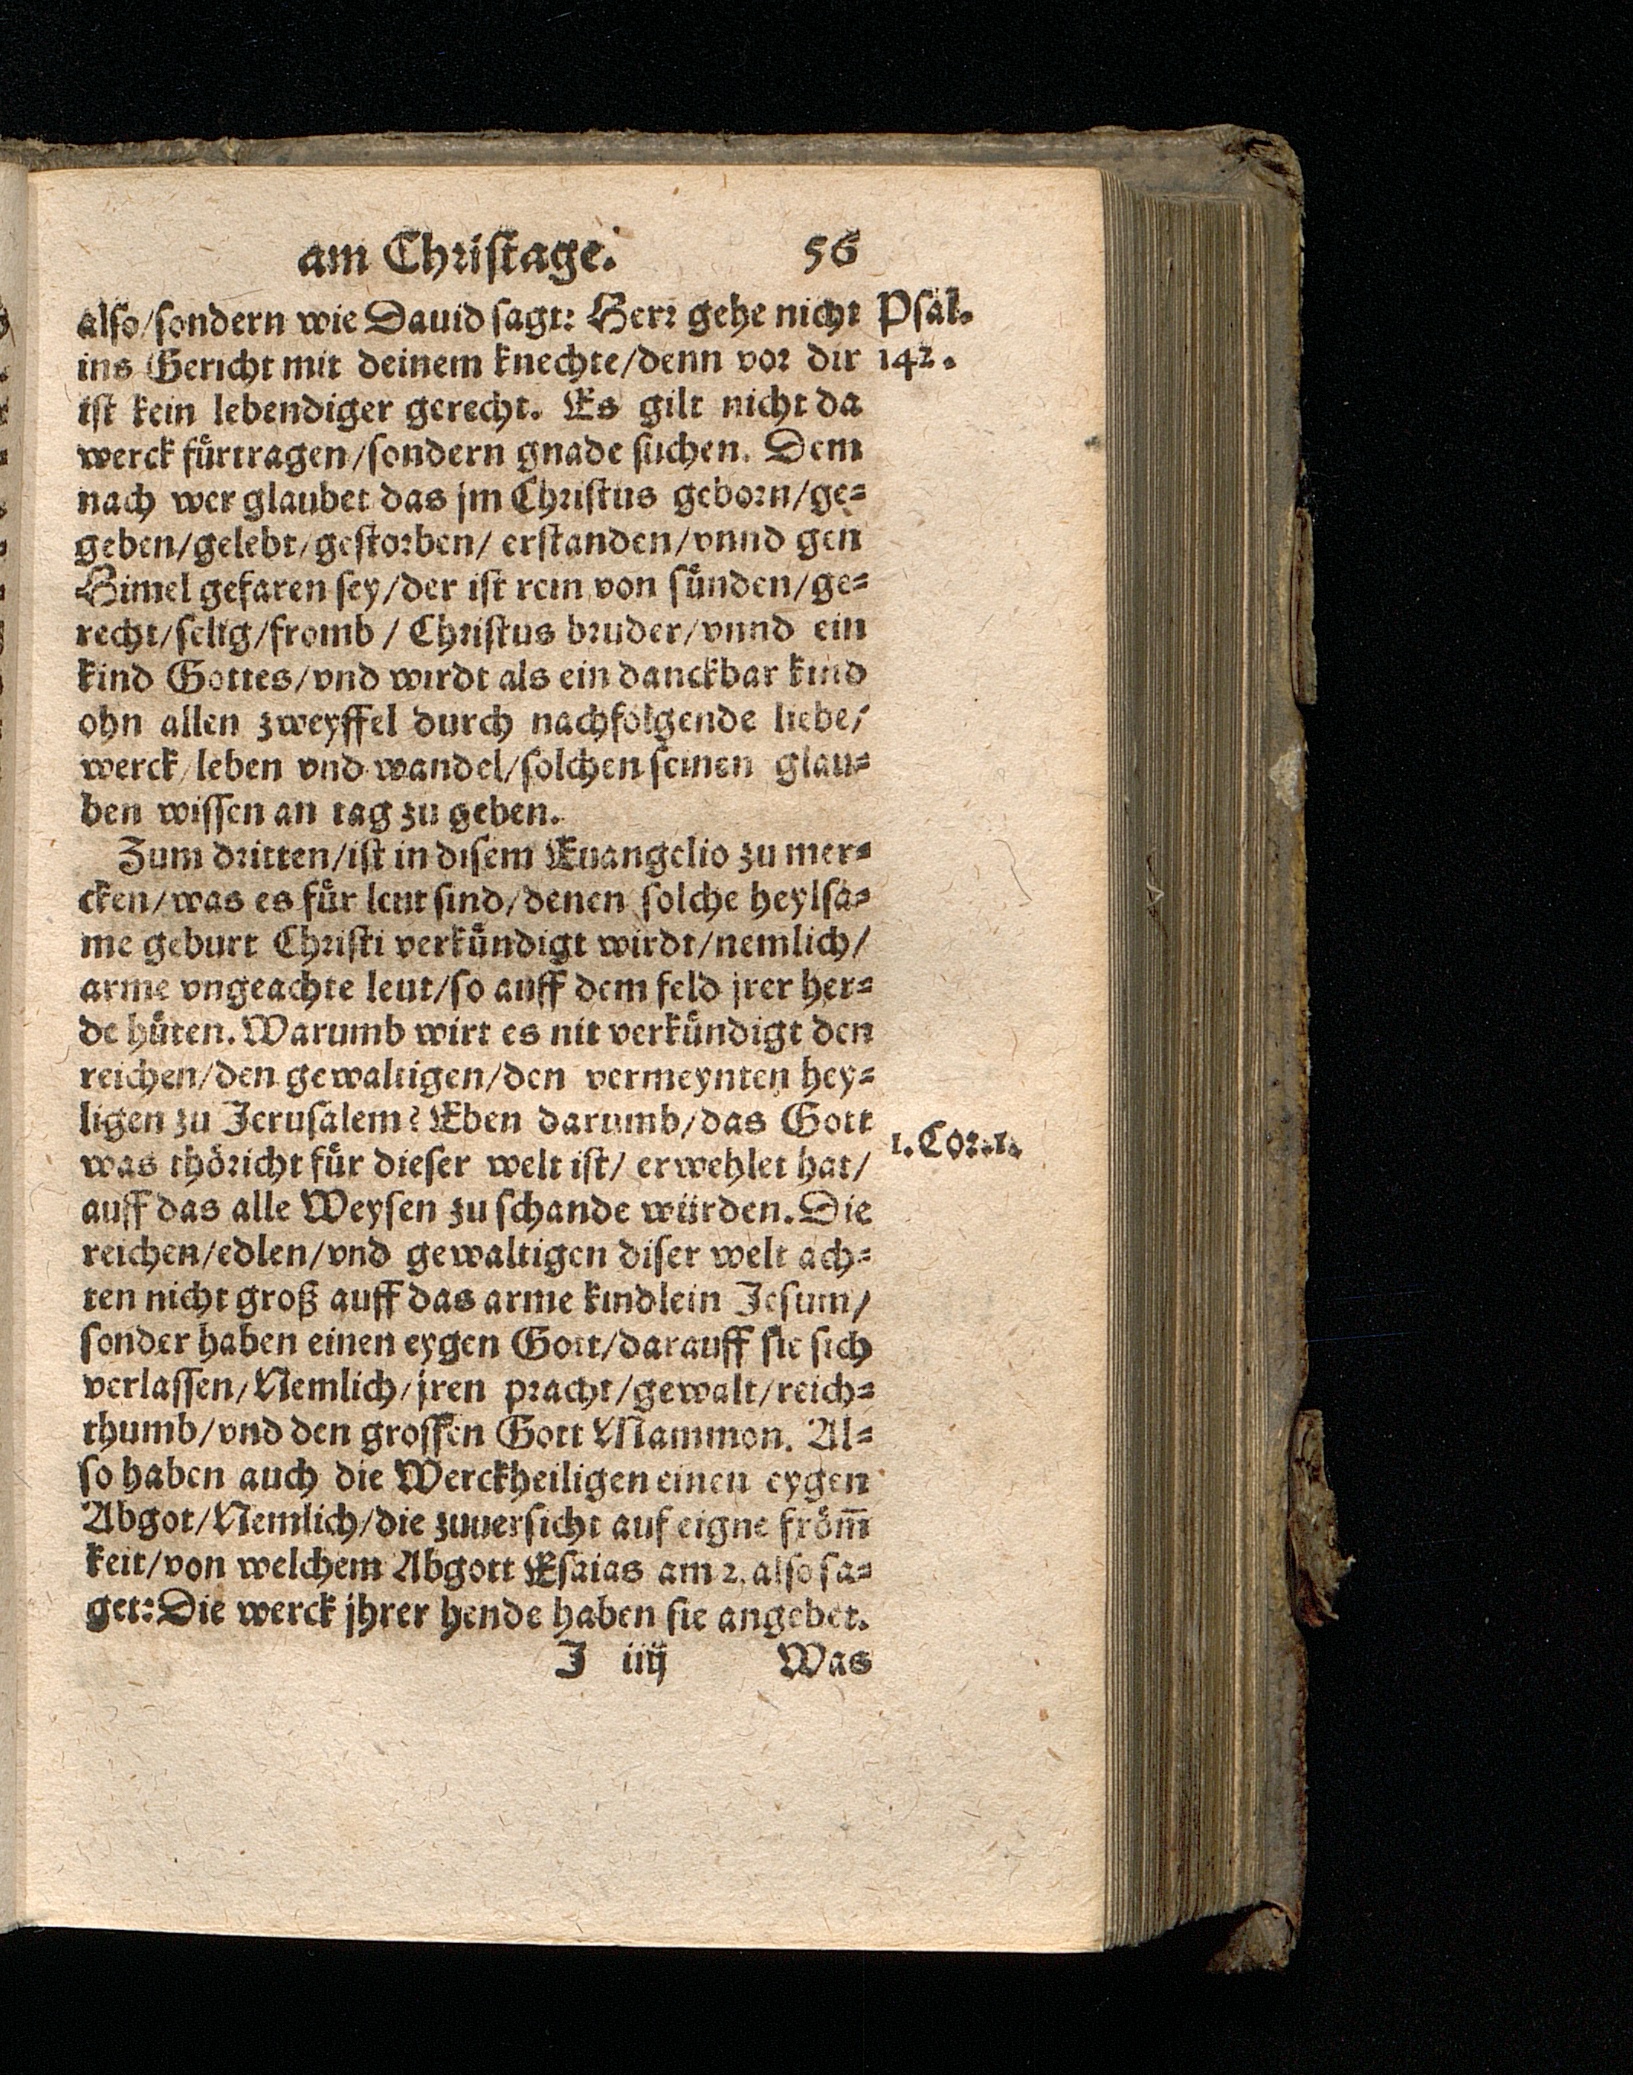 am Christage. 56
also/sondern wie Dauid sagt: Herr gehe nicht Psal.
ins Gericht mit deinem knechte/denn vor dir 142.
ist kein lebendiger gerecht. Es gilt nicht da
werck fürtragen/sondern gnade suchen. Dem
nach wer glaubet das jm Christus geborn/ge=
geben/gelebt/gestorben/ erstanden/vnnd gen
Himel gefaren sey/der ist rein von sünden/ge=
recht/selig/fromb / Christus bruder/vnnd ein
kind Gottes/vnd wirdt als ein danckbar kind
ohn allen zweyffel durch nachfolgende liebe/
werck/leben vnd wandel/solchen seinen glau=
ben wissen an tag zu geben.
Zum dritten/ist in disem Euangelio zu mer=
cken/was es für leut sind/denen solche heylsa=
me geburt Christi verkündigt wirdt/nemlich/
arme vngeachte leut/so auff dem feld jrer her=
de hüten. Warumb wirt es nit verkündigt den
reichen/den gewaltigen/den vermeynten hey=
ligen zu Jerusalem? Eben darumb/das Gott
was thöricht für dieser welt ist/ erwehlet hat/ 1. Cor. 1.
auff das alle Weysen zu schande würden. Die
reichen/edlen/vnd gewaltigen diser welt ach=
ten nicht groß auff das arme kindlein Jesum/
sonder haben einen eygen Gott/darauff sie sich
verlassen/Nemlich/jren pracht/gewalt/reich=
thumb/vnd den grossen Gott Mammon. Al=
so haben auch die Werckheiligen einen eygen
Abgot/Nemlich/die zuuersicht auf eigne fröm̃
keit/von welchem Abgott Esaias am 2. also sa=
get: Die werck jhrer hende haben sie angebet.
J iiij Was